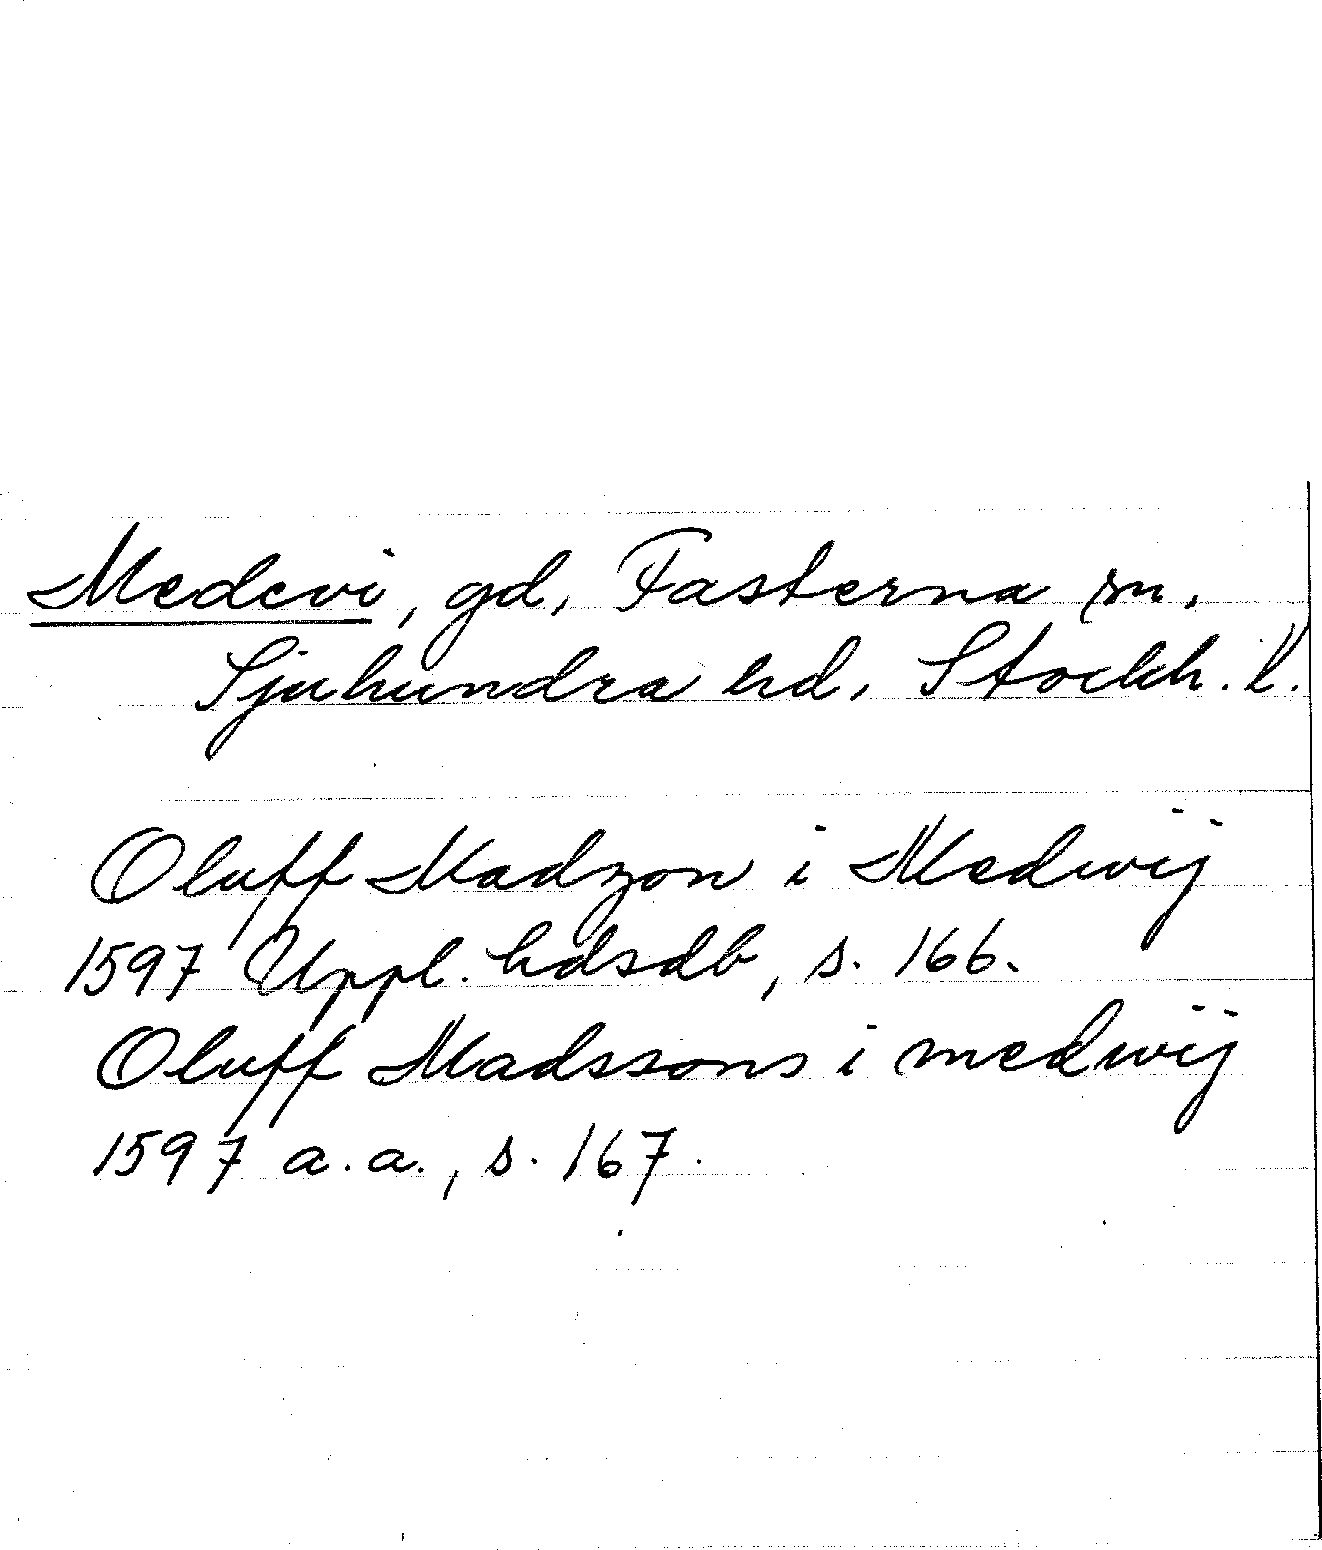 Medevi, gd, Fasterna sn,
Sjuhundra hd, Stockh. l.
Oluff Madzon i Medwij
1597 Uppl. hdsdb, s. 166.
Oluff Madssons i medwij
1597 a.a., s. 167.